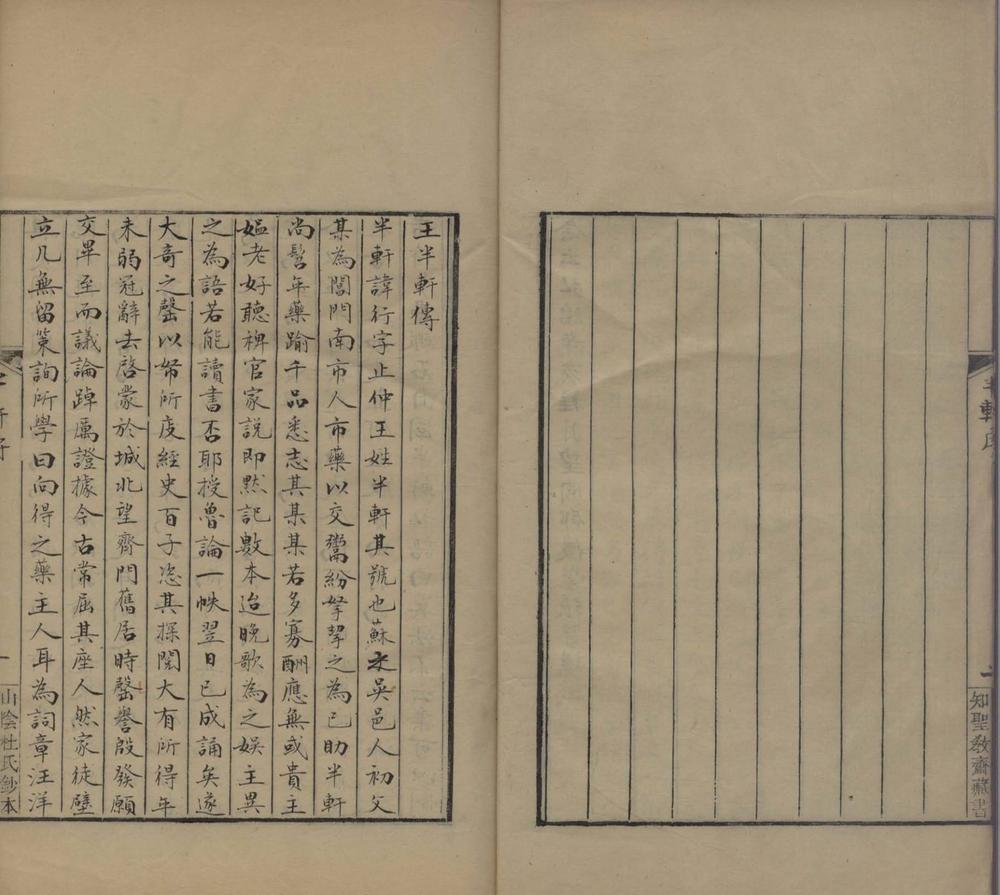 半軒序
知聖教齋藏書
王半軒傳
半軒諱行字止仲王姓半軒其號也蘇之吳邑人初父
某為閶門南市人市藥以交鬻紛拏挈之為已助半軒
尚髫年藥踰千品悉志其某某若多寡酬應無或貴主
媼老好聽稗官家説即黙記數本迨晚歌為之娛主異
之為語若能讀書否耶授魯論一帙翌日已成誦矣遂
大奇之罄以帑所庋經史百子恣其探閱大有所得年
未弱冠辭去啓蒙於城北望齊門舊居時罄譽殷發願
交畢至而議論踔厲證據今古常屈其座人然家徒壁
立几無留策詢所學曰向得之藥主人耳為詞章汪洋
一
山陰杜氏鈔本